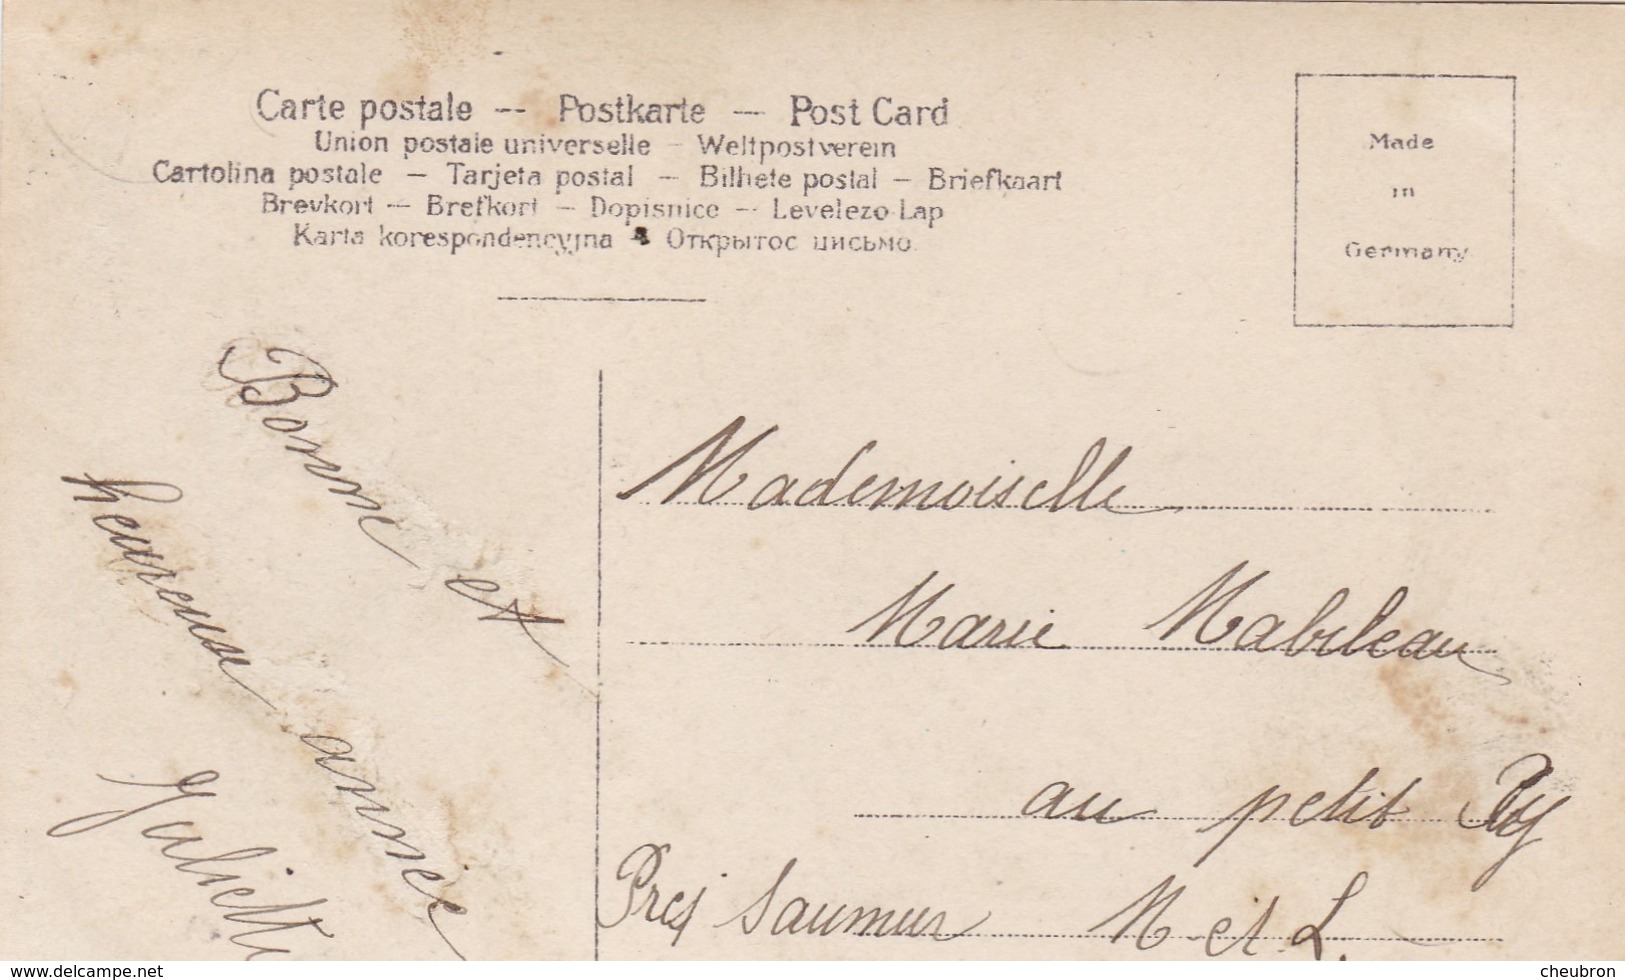 Carte postale -- Postkarte -- Post Card
Union postale universelle - Weltpostverein
Cartolina postale - Tarjeta postal - Bilhete postal - Briefkaart
Brevkort - Brefkort - Dopisnice -- Levelezo-Lap
Karta korespondencyjna - Открытое письмо.
Made
in
Germany
Bonne et
heureuse année
Juliette
Mademoiselle
Marie Mabileau
au petit Puy
Près Saumur M et L.
delcampe.net
cheubron